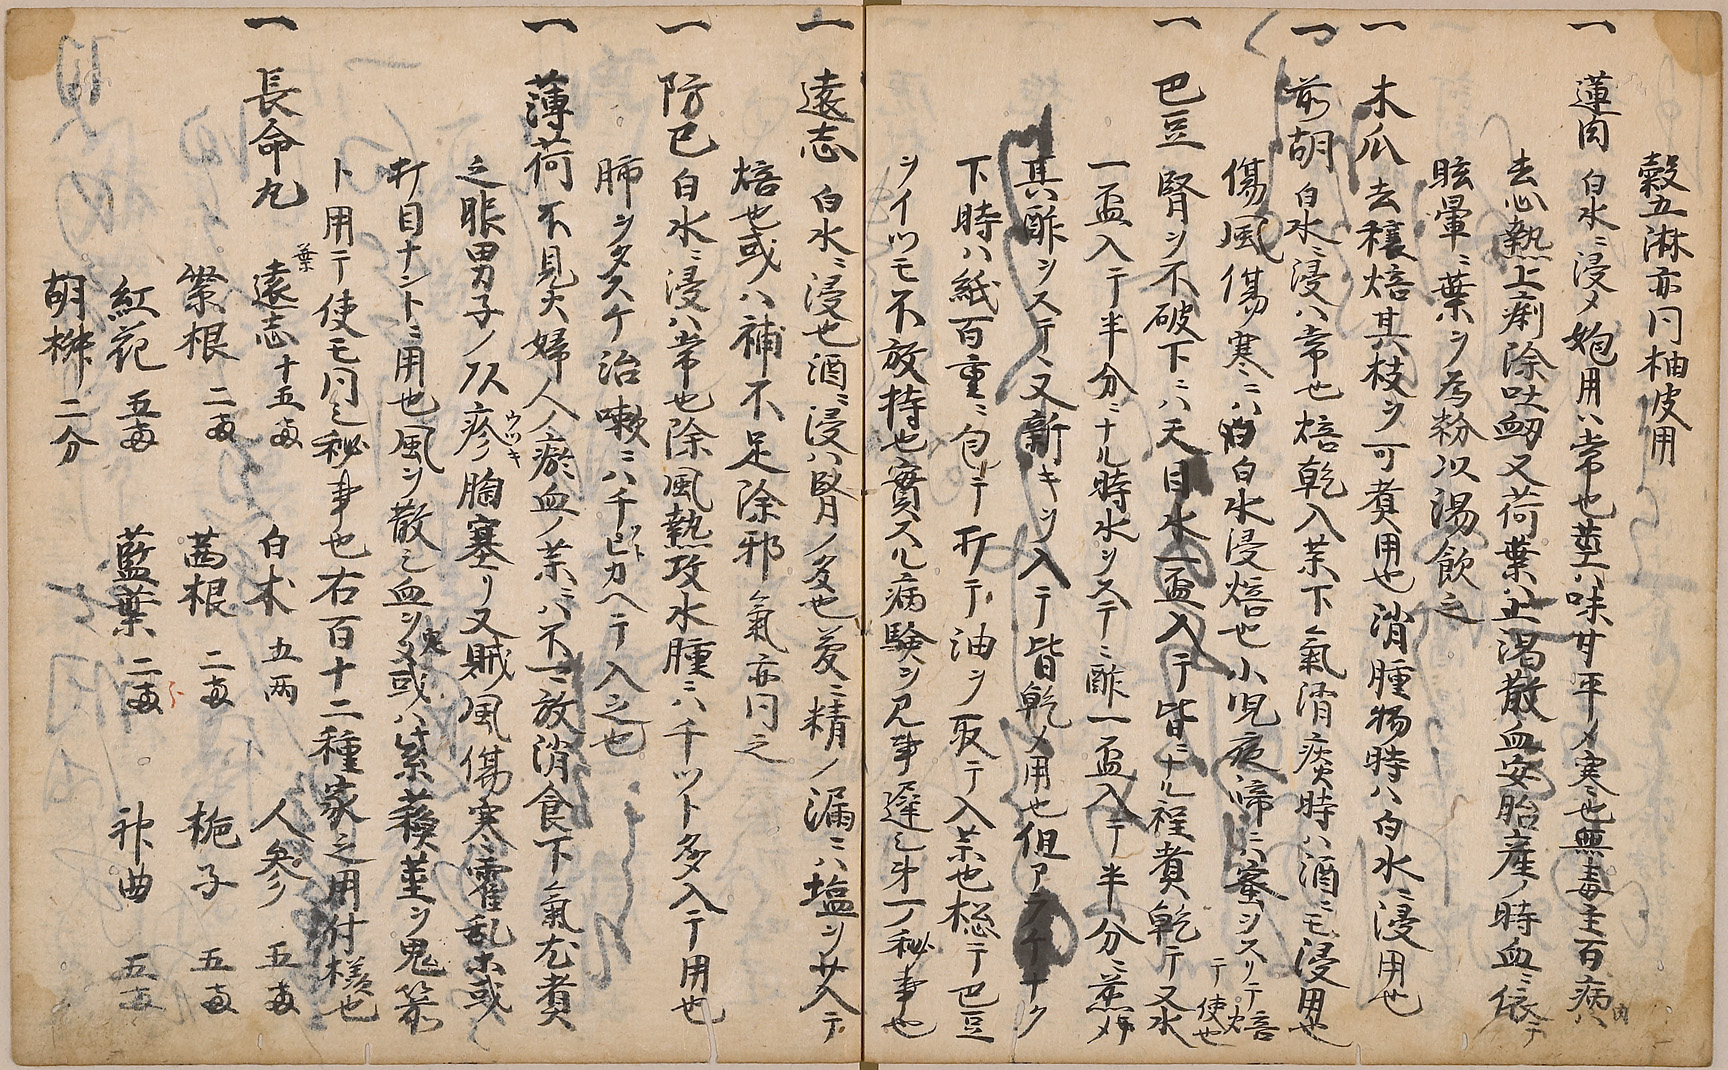 穀五淋亦同柚皮用
一 蓮肉 白水ニ浸メ炮用ハ常也 莖ハ味甘平メ寒也無毒主百病ハ肉
去心熱上痢除吐衂又荷葉ハ止渇散血安胎産ノ時血ニ依テ
眩暈ニ葉ヲ為粉以湯飲之
一 木瓜 去穰焙其枝ヲ可煮用也消腫物時ハ白水ニ浸用也
一 前胡 白水ニ浸ハ常也焙乾入茶下氣消痰時ハ酒ニモ浸用也
傷風傷寒ニハ白水浸焙也小児夜啼ニハ蜜ヲスリテ焙テ使也
一 巴豆 腎ヲ不破下ニハ天目水一盃入テ皆ニナル程煮乾テ又水
一盃入テ半分ニナル時水ヲステニ酢一盃入テ半分ニ煎メ
其酢ヲステ又新キヲ入テ皆乾メ用也但アラケナク
下時ハ紙百重ニ包テ打テ油ヲ取テ入茶也惣テ巴豆
ヲイツモ不放持也實スル病験ヲ見事遅シ第一ノ秘事也
一 遠志 白水ニ浸也酒ニ浸ハ腎ノ多也夢ニ精ノ漏ニハ塩ヲ入テ
焙也或ハ補不足除邪氣亦同之
一 防已 白水ニ浸ハ常也除風熱攻水腫ニハ千ツト多入テ用也
肺ヲタスケ治嗽ニハ千ットヒカヘテ入之也
一 薄荷 不見火婦人ノ瘀血ノ茶ニハ不可放消食下氣尤煮
之脹男子ノ 疼 胸塞リ又賊風傷寒ニ霍乱ニ或ハ
打目ナントニ用也風ヲ散シ血ヲ 或ハ紫蘓莖ヲ鬼箭
ト用テ使モ同シ秘事也右百十二種家之用付様也
一 長命丸 遠志葉 十五両 白朮 五両 人参 五両
紫根 二両 茜根 二両 梔子 五両
紅花 五両 藍葉 二両 神曲 五両
胡桝 二分